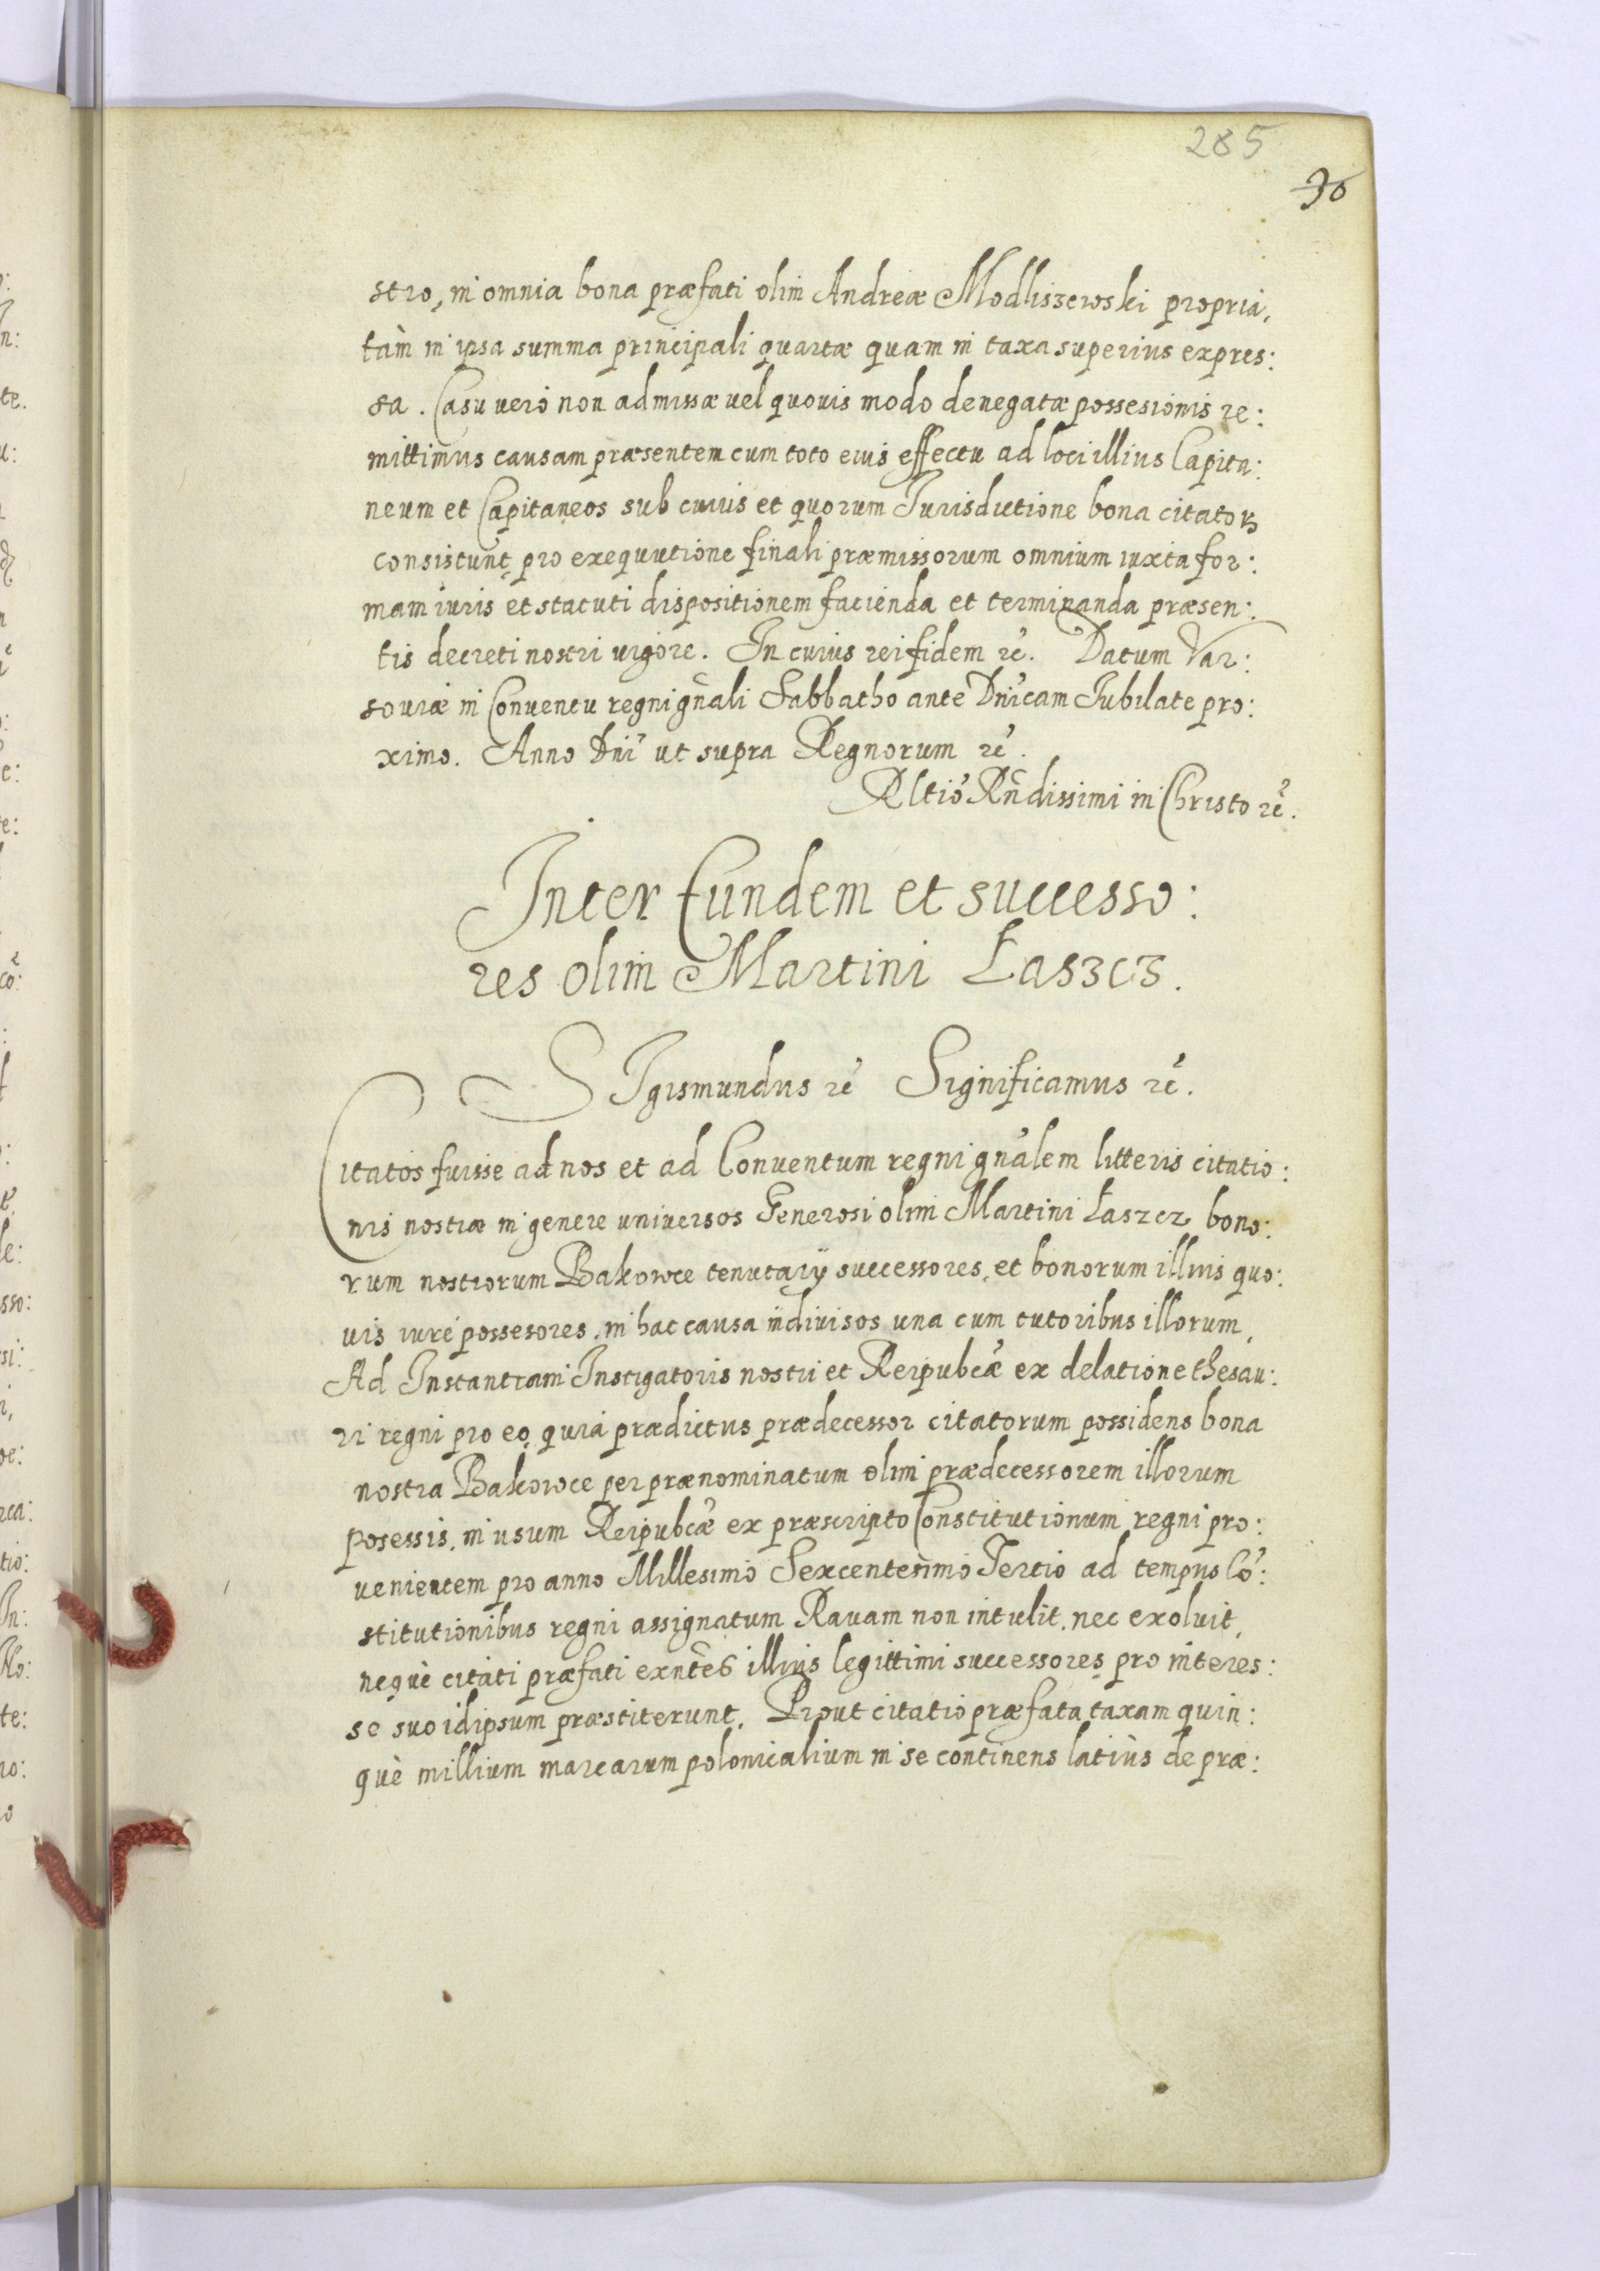 285
36
stro, in omnia bona præfati olim Andreæ Modliszewski propria,
tàm in ipsa summa principali quartæ quam in taxa superius expres:
sa. Casu vero non admissæ vel quovis modo denegatæ possesionis re:
mittimus causam præsentem cum toto eius effectu ad loci illius Capita:
neum et Capitaneos sub cuius et quorum Jurisdictione bona citatoꝝ
consistunt, pro exequutione finali præmissorum omnium iuxta for:
mam iuris et statuti dispositionem facienda et terminanda præsen:
tis decreti nostri vigore. In cuius rei fidem rẽ. Datum Var:
soviæ in Conventu regni gñali Sabbatho ante Dñicam Jubilate pro:
ximo. Anno Dñi ut supra Regnorum rẽ.
Rltio Rñdissimi in Christo rẽ.
Inter Eundem et successo:
res olim Martini Łaszcz.
SIgismundus rẽ Significamus rẽ.
Citatos fuisse ad nos et ad Conventum regni gñalem litteris citatio:
nis nostræ in genere universos Generosi olim Martini Łaszcz bono:
rum nostrorum Bakowce tenutarÿ successores, et bonorum illius quo:
vis iure possesores, in hac causa indivisos una cum tutoribus illorum,
Ad Instantiam Instigatoris nostri et Reipubcæ ex delatione thesau:
ri regni pro eo, quia prædictus prædecessor citatorum possidens bona
nostra Bakowce per prænominatum olim prædecessorem illorum
posessis, in usum Reipubcæ ex præscripto Constitutionum regni pro:
venientem pro anno Millesimo Sexcentesimo Tertio ad tempus Cõ:
stitutionibus regni assignatum Ravam non intulit, nec exoluit,
nequè citati præfati exñtes illius legittimi successores, pro interes:
se suo idipsum præstiterunt. Prout citatio præfata taxam quin:
què millium marcarum polonicalium in se continens latiùs de præ: